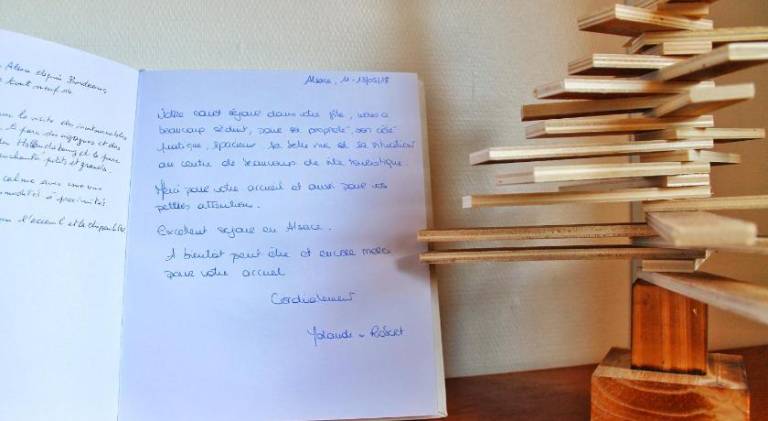 Alsace depuis Bordeaux,
tout neuf de
la visite des incontournables
le parc des cigognes et des
Hollandsbourg et le parc
enchanté petits et grands.
calme avec une vue
à proximité
l'accueil et la disponibilité
Alsace, 11-18/05/18
Notre court séjour dans votre gîte, nous a
beaucoup séduit, pour sa propreté, son côté
pratique, spacieux, sa belle vue et sa situation
au centre de beaucoup de site touristique.
Merci pour votre accueil et aussi pour vos
petites attention.
Excellent séjour en Alsace.
A bientôt peut être et encore merci
pour votre accueil
Cordialement
Yolande & Robert